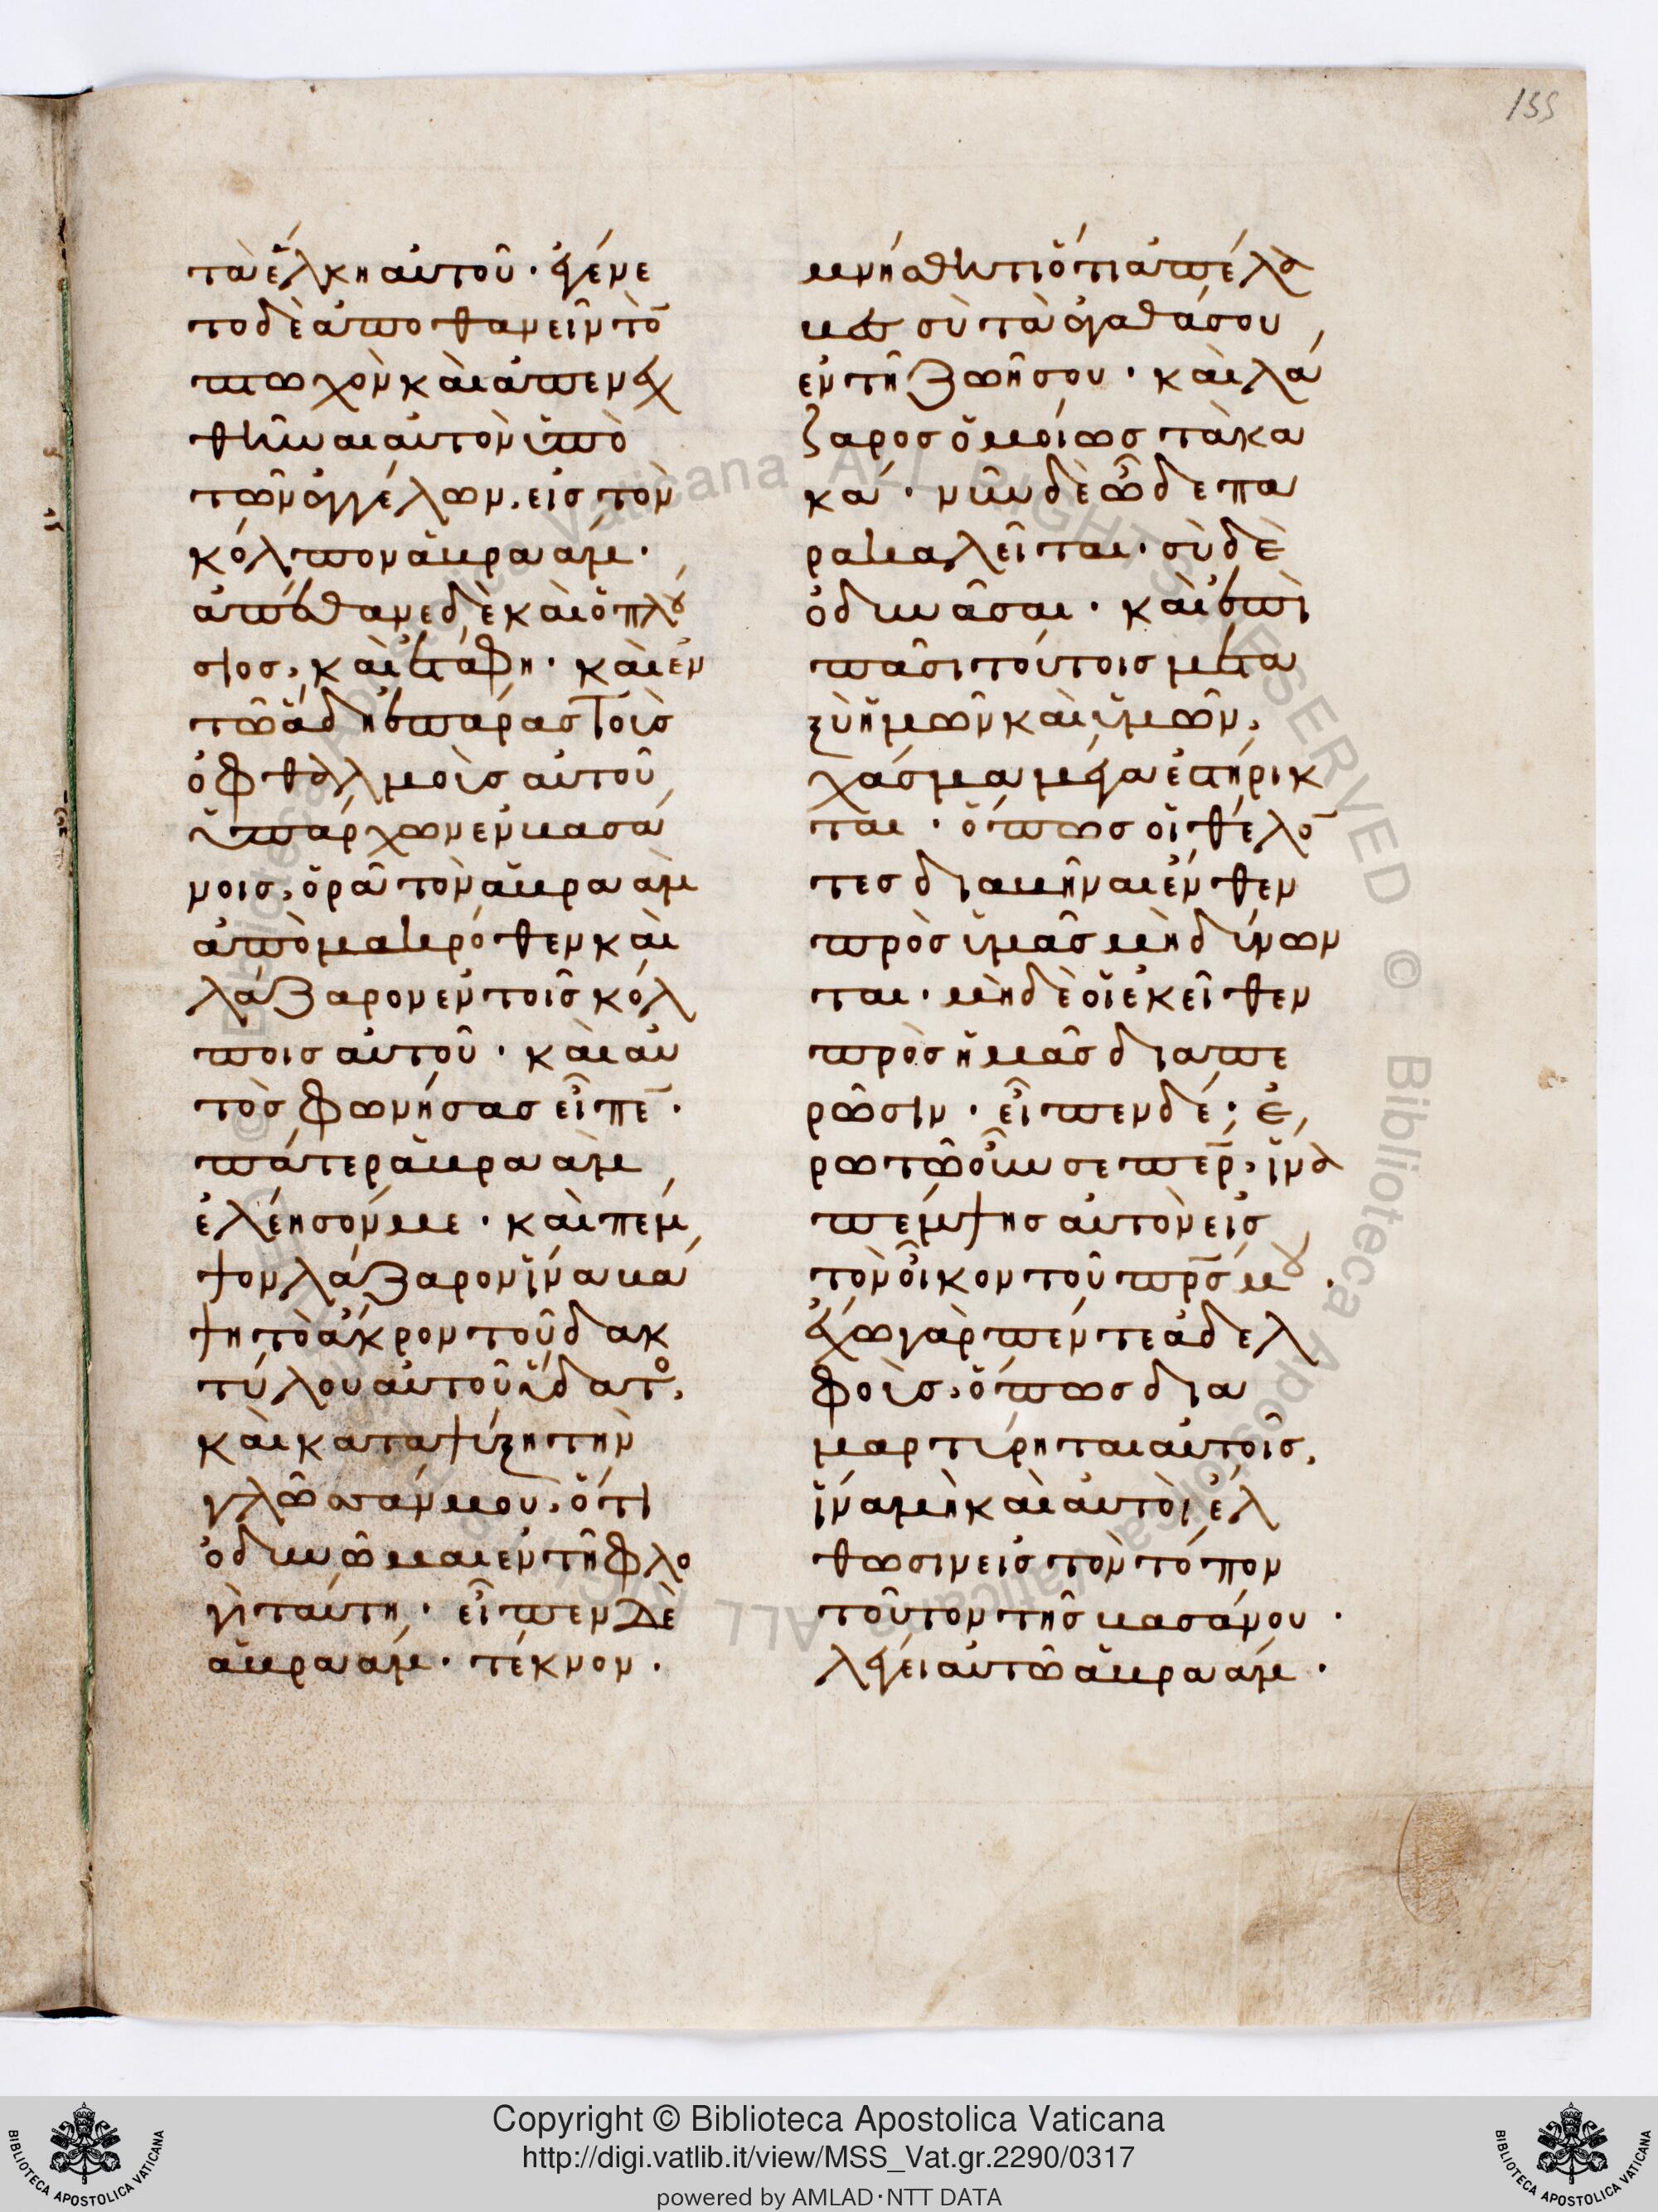 155
τὰ ἕλκη αὐτοῦ · ἐγένε
το δὲ ἀποθανεῖν τὸ̄
πτωχὸν καὶ ἀπενεχ
θῆναι αὐτὸν ὑπὸ
τῶν ἀγγέλων, εἰς τὸν
κόλπον ἀβραάμ ·
ἀπέθανε δὲ καὶ ὁ πλού
σιος, καὶ ἐτάφη · καὶ ἐν
τῶ ἅδη ἐπάρας τοὺς
ὀφθαλμοὺς αὐτοῦ,
ὑπάρχων ἐν βασά
νοις, ὁρᾶ τὸν ἀβραὰμ
ἀπὸ μακρόθεν καὶ
λάζαρον ἐν τοῖς κόλ
ποις αὐτοῦ · καὶ αὐ
τὸς φωνήσας εἶπε̄ ·
πάτερ ἀβραὰμ,
ἐλέησόν με · καὶ πέμ
ψον λάζαρον ἵνα βά
ψη τὸ ἄκρον τοῦ δακ
τύλου αὐτοῦ ὕδατο,
καὶ καταψύξη τὴν
γλῶσσάν μου, ὅτι
ὀδυνῶμαι ἐν τῆ φλο
γὶ ταύτη · εἶπεν δὲ
ἀβραάμ · τέκνον ·
μνήσθητι ὅτι ἀπέλα
βες σὺ τὰ ἀγαθά σου,
ἐν τῆ ζωῆ σου · καὶ λά
ζαρος ὁμοίως τὰ κα
κά · νῦν δὲ ὧδε πα
ρακαλεῖται · σὺ δὲ
ὀδυνᾶσαι · καὶ ἐπὶ
πᾶσι τούτοις μετα
ξὺ ἡμῶν καὶ ὑμῶν,
χάσμα μέγα ἐστήρικ
ται · ὅπως οἱ θέλο̄
τες διαβῆναι ἔνθεν
πρὸς ὑμᾶς μὴ δύνων
ται · μὴδὲ οἱ ἐκεῖθεν
πρὸς ἡμᾶς διαπε
ρῶσιν · εἶπεν δέ · ἐ
ρωτῶ οὖν σε πε̄ρ, ἵνα
πέμψης αὐτὸν εἰς
τὸν οἶκον τοῦ πρ̄ς μου ·
ἔχω γὰρ πέντε ἀδελ
φοὺς, ὅπως δια
μαρτύρηται αὐτοῖς,
ἵνα μὴ καὶ αὐτοὶ ἔλ
θωσιν εἰς τὸν τόπον
τοῦτον τῆς βασάνου ·
λέγει αὐτῶ ἀβραάμ ·
Copyright © Biblioteca Apostolica Vaticana
http://digi.vatlib.it/view/MSS_Vat.gr.2290/0317
powered by AMLAD·NTT DATA
BIBLIOTECA APOSTOLICA VATICANA
BIBLIOTECA APOSTOLICA VATICANA